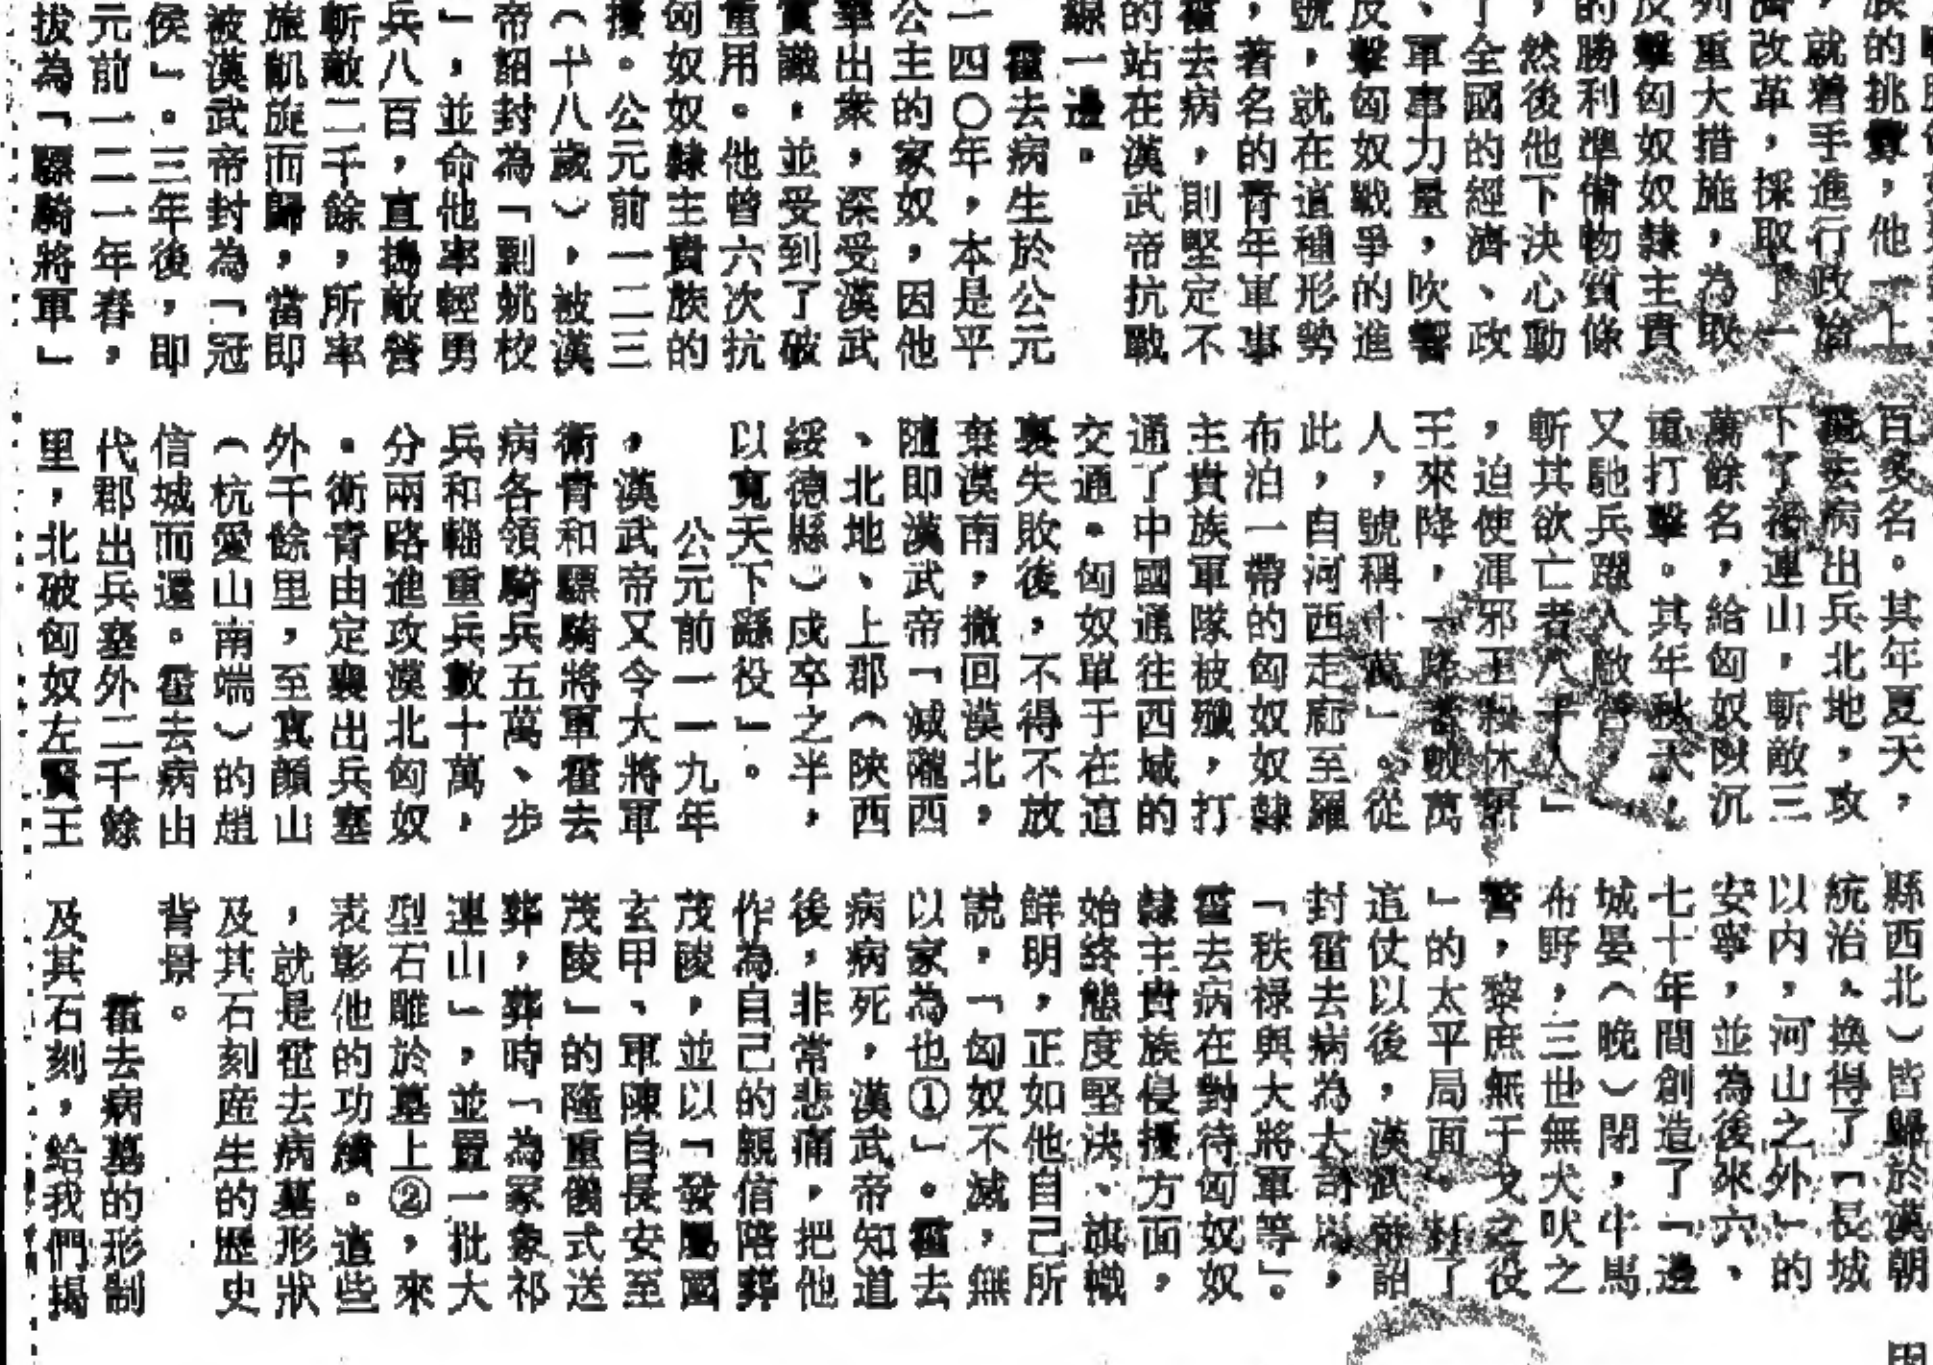 族的挑釁，他一上
，就着手進行政治
濟改革，採取了一
列重大措施，為取
反擊匈奴奴隸主貴
的勝利準備物質條
，然後他下決心動
了全國的經濟、政
、軍事力量，吹響
反擊匈奴戰爭的進
號，就在這種形勢
，著名的青年軍事
霍去病，則堅定不
的站在漢武帝抗戰
線一邊。
霍去病生於公元
一四〇年，本是平
公主的家奴，因他
舉出衆，深受漢武
賞識，並受到了破
重用。他曾六次抗
匈奴奴隸主貴族的
擾。公元前一二三
（十八歲），被漢
帝詔封為「剽姚校
」，並命他率輕勇
兵八百，直搗敵營
斬敵二千餘，所率
旅凱旋而歸，當即
被漢武帝封為「冠
侯」。三年後，即
元前一二一年春，
拔為「驃騎將軍」
百多名。其年夏天，
霍去病出兵北地，攻
下了祁連山，斬敵三
萬餘名，給匈奴以沉
重打擊。其年秋天，
又馳兵躍入敵營，
斬其欲亡者八千人」
，迫使渾邪王殺休屠
王來降，一降者數萬
人，號稱十萬」。從
此，自河西走廊至羅
布泊一帶的匈奴奴隸
主貴族軍隊被殲，打
通了中國通往西域的
交通。匈奴單于在這
裏失敗後，不得不放
棄漠南，撤回漠北，
隨即漢武帝「減隴西
、北地、上郡（陝西
綏德縣）戍卒之半，
以寬天下繇役」。
公元前一一九年
，漢武帝又令大將軍
衛青和驃騎將軍霍去
病各領騎兵五萬、步
兵和輜重兵數十萬，
分兩路進攻漠北匈奴
。衛青由定襄出兵塞
外千餘里，至寘顏山
（杭愛山南端）的趙
信城而還。霍去病由
代郡出兵塞外二千餘
里，北破匈奴左賢王
縣西北）皆歸於漢朝
統治、換得了「長城
以內，河山之外」的
安寧，並為後來六、
七十年間創造了「邊
城晏（晚）閉，牛馬
布野，三世無犬吠之
警，黎庶無干戈之役
」的太平局面。打了
這仗以後，漢武帝詔
封霍去病為大司馬，
「秩祿與大將軍等」。
霍去病在對待匈奴奴
隸主貴族侵擾方面，
始終態度堅決、旗幟
鮮明，正如他自己所
說，「匈奴不滅，無
以家為也①」。霍去
病病死，漢武帝知道
後，非常悲痛，把他
作為自己的親信陪葬
茂陵，並以「發屬國
玄甲、軍陳自長安至
茂陵」的隆重儀式送
葬，葬時「為冢象祁
連山」，並置一批大
型石雕於墓上②，來
表彰他的功績。這些
，就是霍去病墓形狀
及其石刻產生的歷史
背景。
霍去病墓的形制
及其石刻，給我們揭